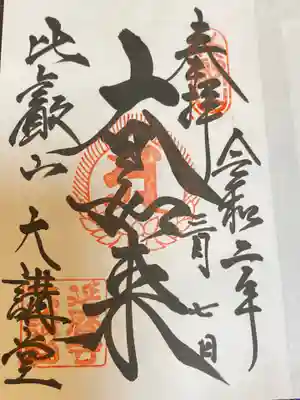 奉拝
令和二年
三月七日
大日如来
比叡山
大講堂
延暦寺